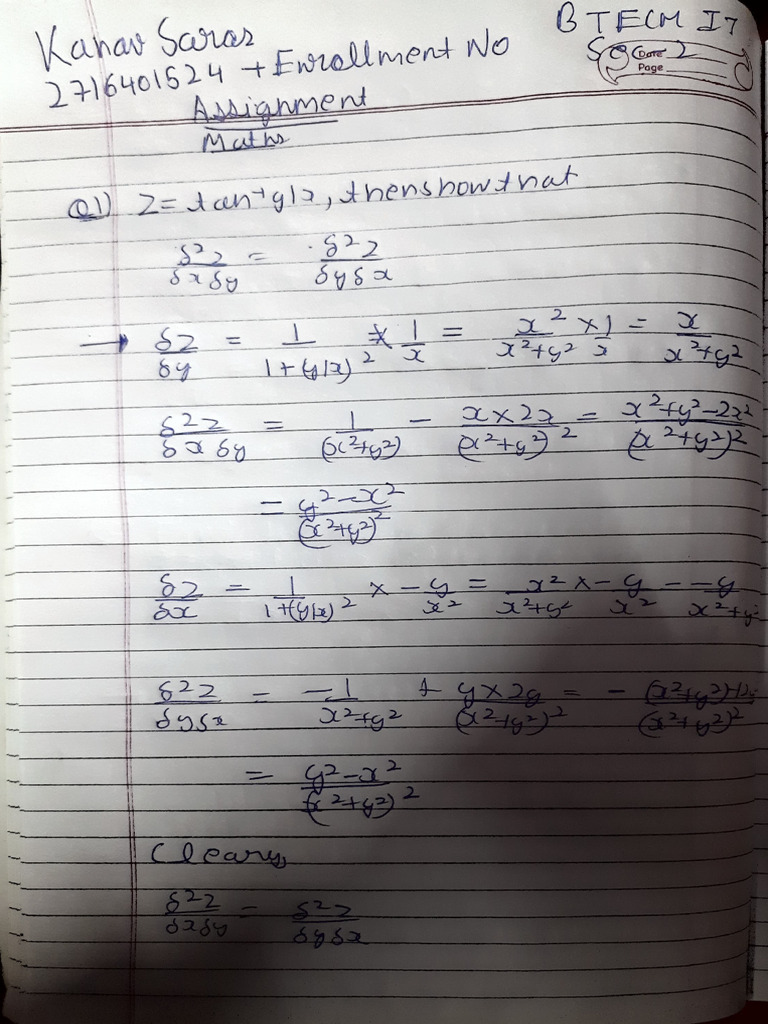 Kanav Saras
B TECH IT
2716401524 → Enrollment No
Sec 2
Date
Page
Assignment
Maths
Q1) Z = tan⁻¹ y/x, then show that
δ²z/δxδy = δ²z/δyδx
→ δz/δy = 1/(1+(y/x)²) × 1/x = x²/(x²+y²) × 1/x = x/(x²+y²)
δ²z/δxδy = 1/(x²+y²) - (x×2x)/(x²+y²)² = (x²+y²-2x²)/(x²+y²)²
= (y²-x²)/(x²+y²)²
δz/δx = 1/(1+(y/x)²) × -y/x² = x²/(x²+y²) × -y/x² = -y/(x²+y²)
δ²z/δyδx = -1/(x²+y²) + (y×2y)/(x²+y²)² = -(x²+y²)+2y/(x²+y²)²
= (y²-x²)/(x²+y²)²
Cleary
δ²z/δxδy = δ²z/δyδx